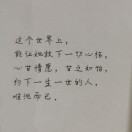 这个世界上，
能让她放下一切心结，
心甘情愿，甘之如饴，
约下一生一世的人，
唯他而已。